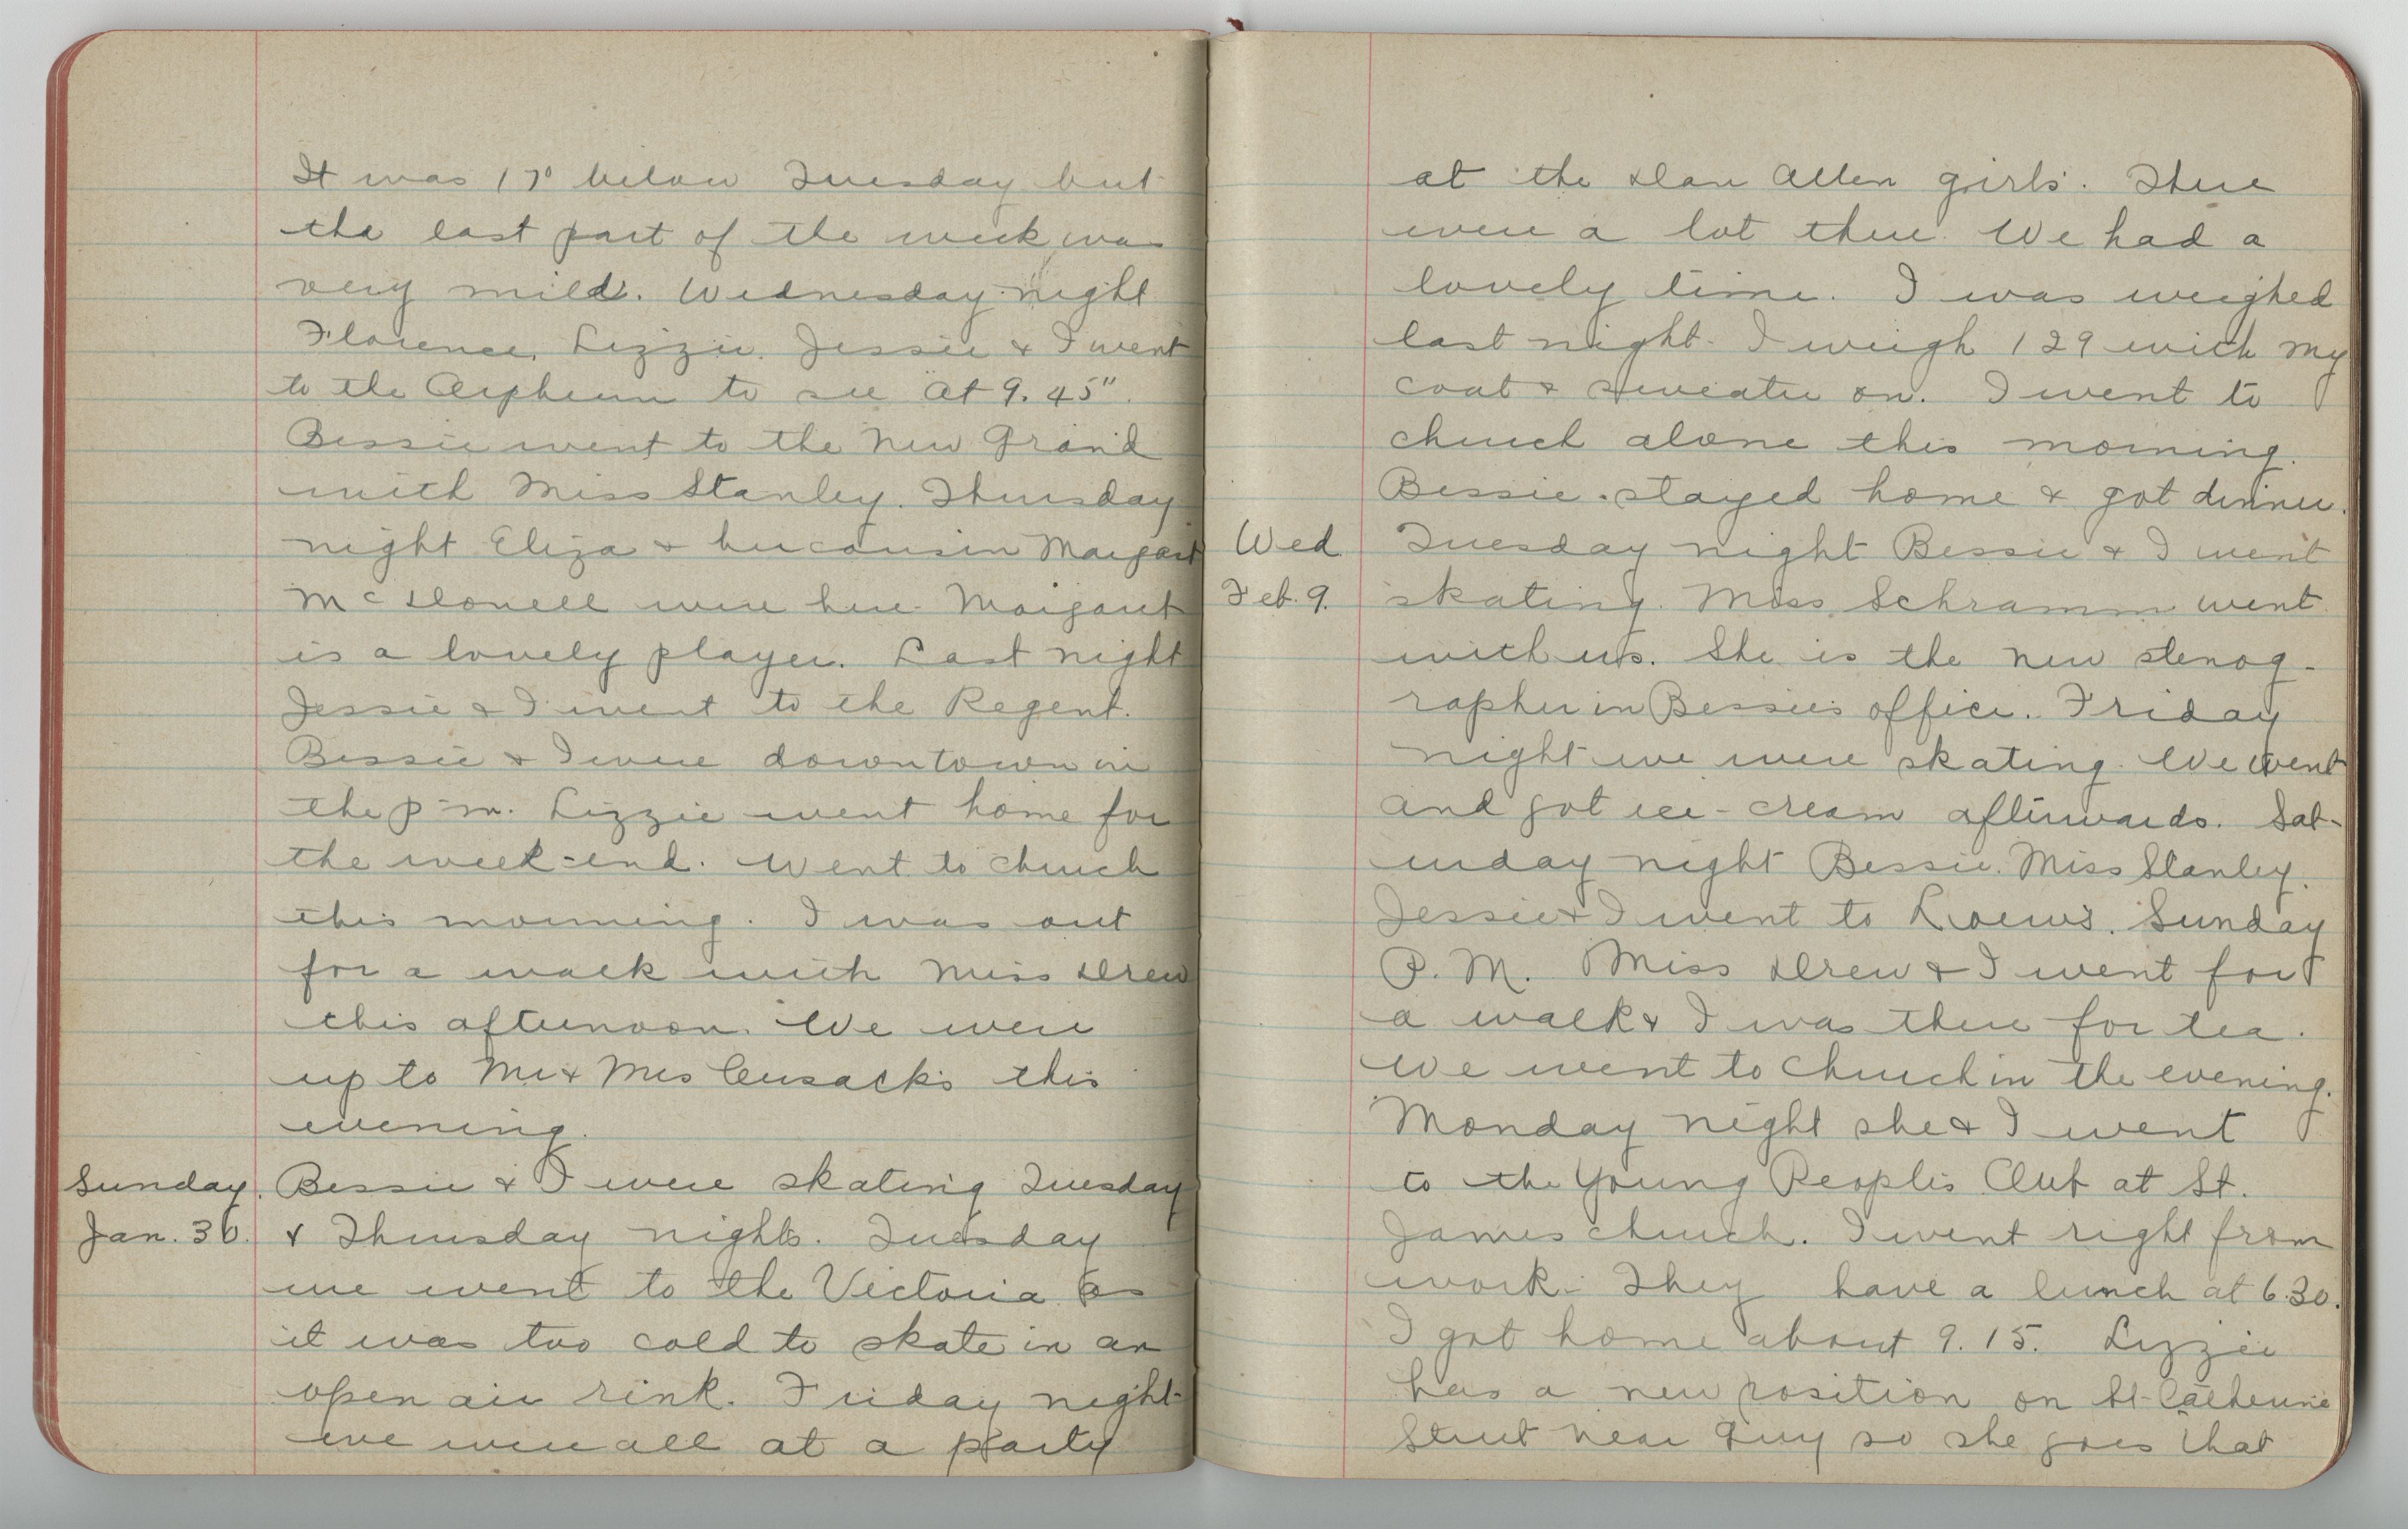 It was 17° below Tuesday but
the last part of the week was
very mild. Wednesday night
Florence, Lizzie, Jessie & I went
to the Orpheum to see "At 9.45".
Bessie went to the New Grand
with Miss Stanley. Thursday
night Eliza & her cousin Margaret
McDonell were here. Margaret
is a lovely player. Last night
Jessie & I went to the Regent.
Bessie & I were downtown in
the p.m. Lizzie went home for
the week-end. Went to church
this morning. I was out
for a walk with Miss Drew
this afternoon. We were
up to Mr & Mrs Cusack's this
evening.
Sunday. Bessie & I were skating Tuesday
Jan. 30. & Thursday nights. Tuesday
we went to the Victoria as
it was too cold to skate in an
open air rink. Friday night
we were all at a party
at the Dan Allen girls'. There
were a lot there. We had a
lovely time. I was weighed
last night. I weigh 129 with my
coat & sweater on. I went to
church alone this morning.
Bessie stayed home & got dinner.
Wed Tuesday night Bessie & I went
Feb. 9. skating. Miss Schramm went
with us. She is the new stenog-
rapher in Bessie's office. Friday
night we were skating. We went
and got ice-cream afterwards. Sat-
urday night Bessie, Miss Stanley,
Jessie & I went to Loew's. Sunday
P.M. Miss Drew & I went for
a walk & I was there for tea.
We went to church in the evening.
Monday night she & I went
to the Young People's Club at St.
James church. I went right from
work. They have a lunch at 6.30.
I got home about 9.15. Lizzie
has a new position on St. Catherine
Street near Guy so she goes that